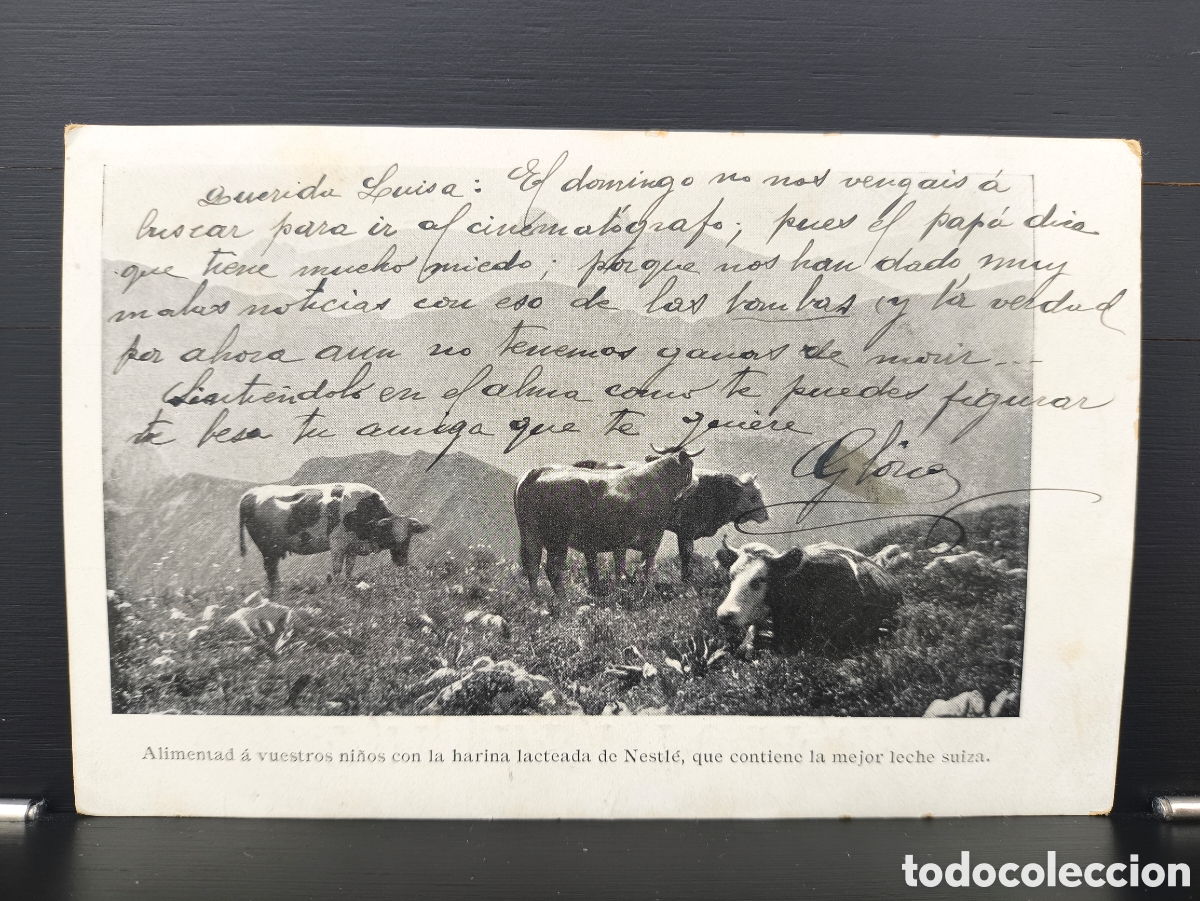 Querida Luisa: El domingo no nos vengais á
buscar para ir al cinematógrafo; pues el papá dice
que tiene mucho miedo; porque nos han dado muy
malas noticias con eso de las bombas y la verdad
por ahora aun no tenemos ganas de morir...
Sintiéndolo en el alma como te puedes figurar
te besa tu amiga que te quiere
Gloria
Alimentad á vuestros niños con la harina lacteada de Nestlé, que contiene la mejor leche suiza.
todocoleccion